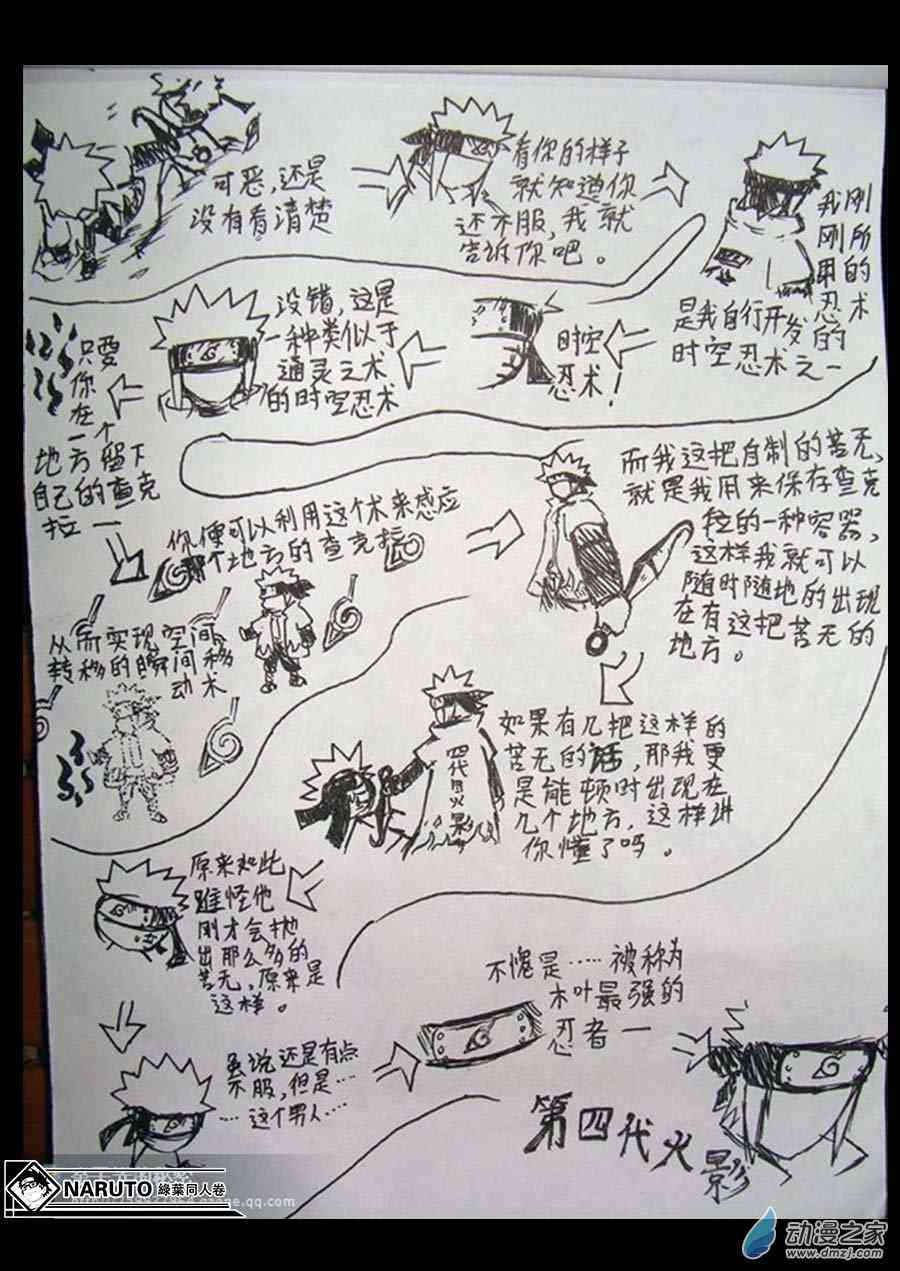 可恶,还是
没有看清楚
有你的样子
就知道你
还不服,我就
告诉你吧。
我刚
刚所
用的
忍术
是我自行开发的
时空忍术之一
时空
忍术!
没错,这是
一种类似于
通灵之术
的时空忍术
只要
你
在
一个
地方留下
自己的查克
拉一
你便可以利用这个术来感应
那个地方的查克拉
从而实现空间
转移的瞬间移
动术
而我这把自制的苦无,
就是我用来保存查克
拉的一种容器,
这样我就可以
随时随地的出现
在有这把苦无的
地方。
如果有几把这样的
苦无的话,那我更
是能顿时出现在
几个地方,这样讲
你懂了吗。
四代目火影
原来如此
难怪他
刚才会抛
出那么多的
苦无,原来是
这样。
虽说还是有点
不服,但是……
……这个男人……
不愧是……被称为
木叶最强的
忍者一
第四代火影
NARUTO 綠葉同人卷
qzone.qq.com
动漫之家
www.dmzj.com